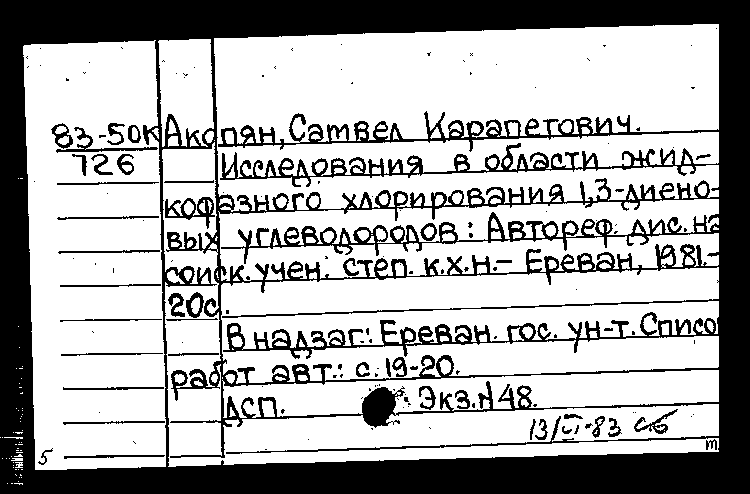 83-50К Акопян, Сатвел Карапетович.
726 Исследования в области жид-
кофазного хлорирования 1,3-диено-
вых углеводородов: Автореф. дис. на
соиск. учен. степ. к.х.н.- Ереван, 1981.-
20с.
В надзаг.: Ереван. гос. ун-т. Списо
работ авт.: с. 19-20.
ДСП. Экз.N48.
13/VI-83
5 т